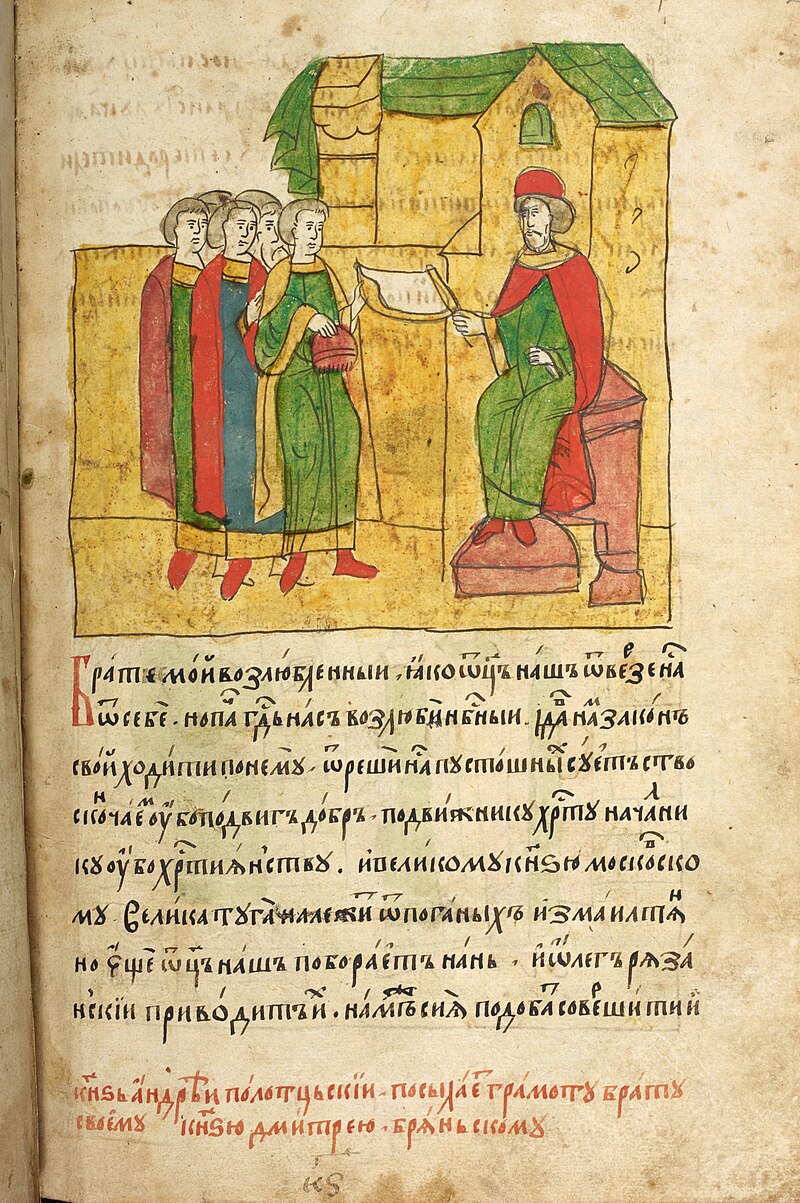 Брате мой возлюбленныи, ꙗко ѿц҃ъ нашъ ѿвеⷬ҇зе наⷭ҇
ѿ себе. но паⷱ҇ гдⷭ҇ь насъ возлюби нбⷭ҇ныи. і даⷭ҇ наⷨ҇ законъ
свой ходити по немꙋ. ѿреши наⷭ҇ пꙋстошныⷯ҇ сꙋетъства
скоⷩ҇чаеⷨ҇ оу҆бо подвигъ добръ. подвижникꙋ хрⷭ҇тꙋ началⷧ҇ни
кꙋ оу҆бо хрⷭ҇тиꙗнъствꙋ. и великомꙋ кн҃ѕю москоⷡ҇ско
мꙋ. велика тꙋга належи ѿ поганыхъ измаилтꙗⷩ҇
но еще ѿц҃ъ нашъ побораетъ нань. и ѻлегъ рѧза
нскїи приводитъ и. наⷨ҇ подобаⷭ҇ совеⷬ҇шити и
кн҃ѕь андрѣи полотцьскїи. посылаеⷮ҇ грамотꙋ братꙋ
своемꙋ кн҃ѕю дмитрею. брѧньскомꙋ
кѕ